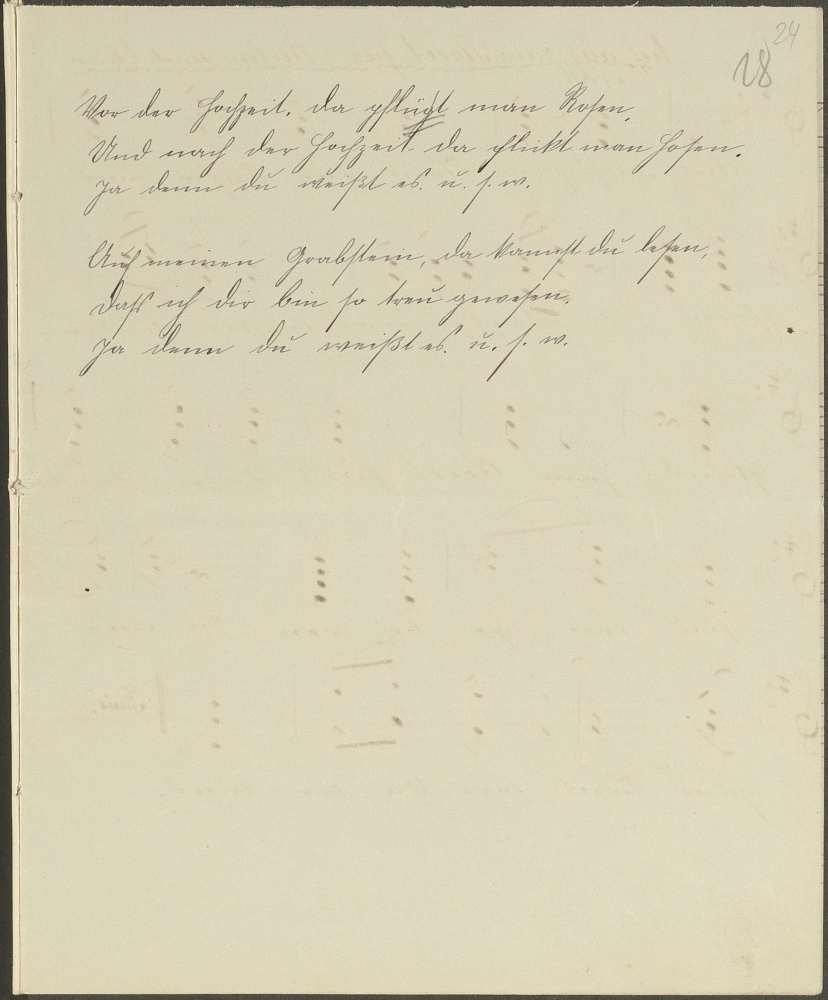 24
28
Vor der Hochzeit. da pflügt man Rosen,
Und nach der Hochzeit da flickt man Hosen.
Ja denn du weißt es. u. s. w.
Auf meinen Grabstein, da kannst du lesen,
Daß ich dir bin so treu gewesen.
Ja denn du weißt es. u. s. w.